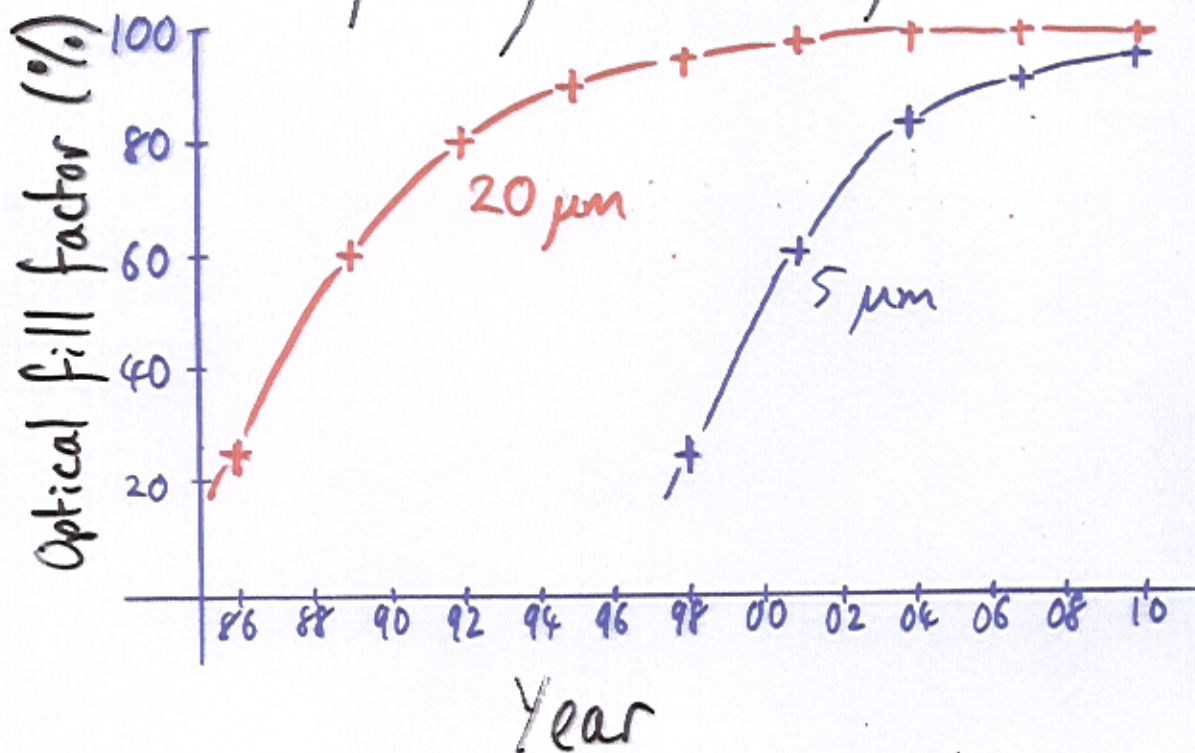 Optical fill factor (%)
100
80
60
40
20
20 μm
5 μm
86 88 90 92 94 96 98 00 02 04 06 08 10
Year